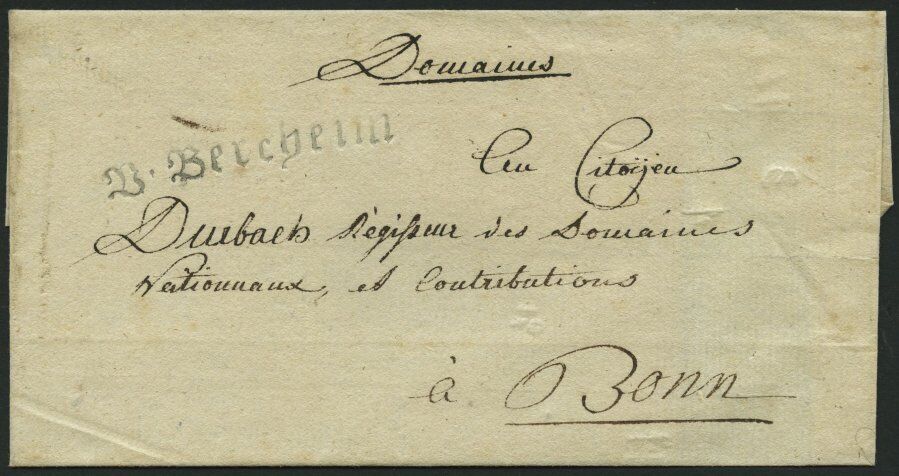 Domaines
V. Bercheim
Au Citoÿen
Durbach Régisseur des Domaines
Nationnaux, et Contributions
à Bonn